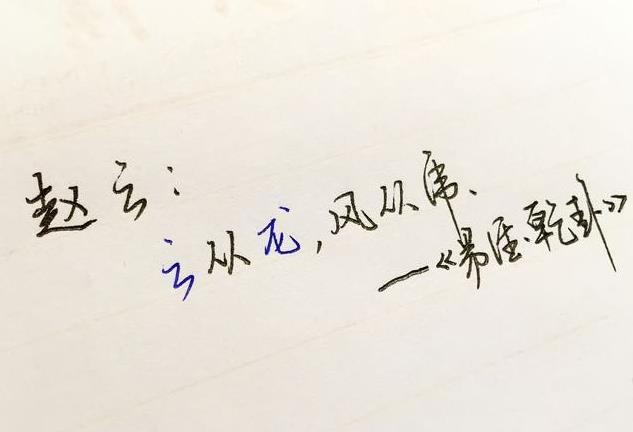 赵云：
云从龙,风从虎、
—《易经·乾卦》